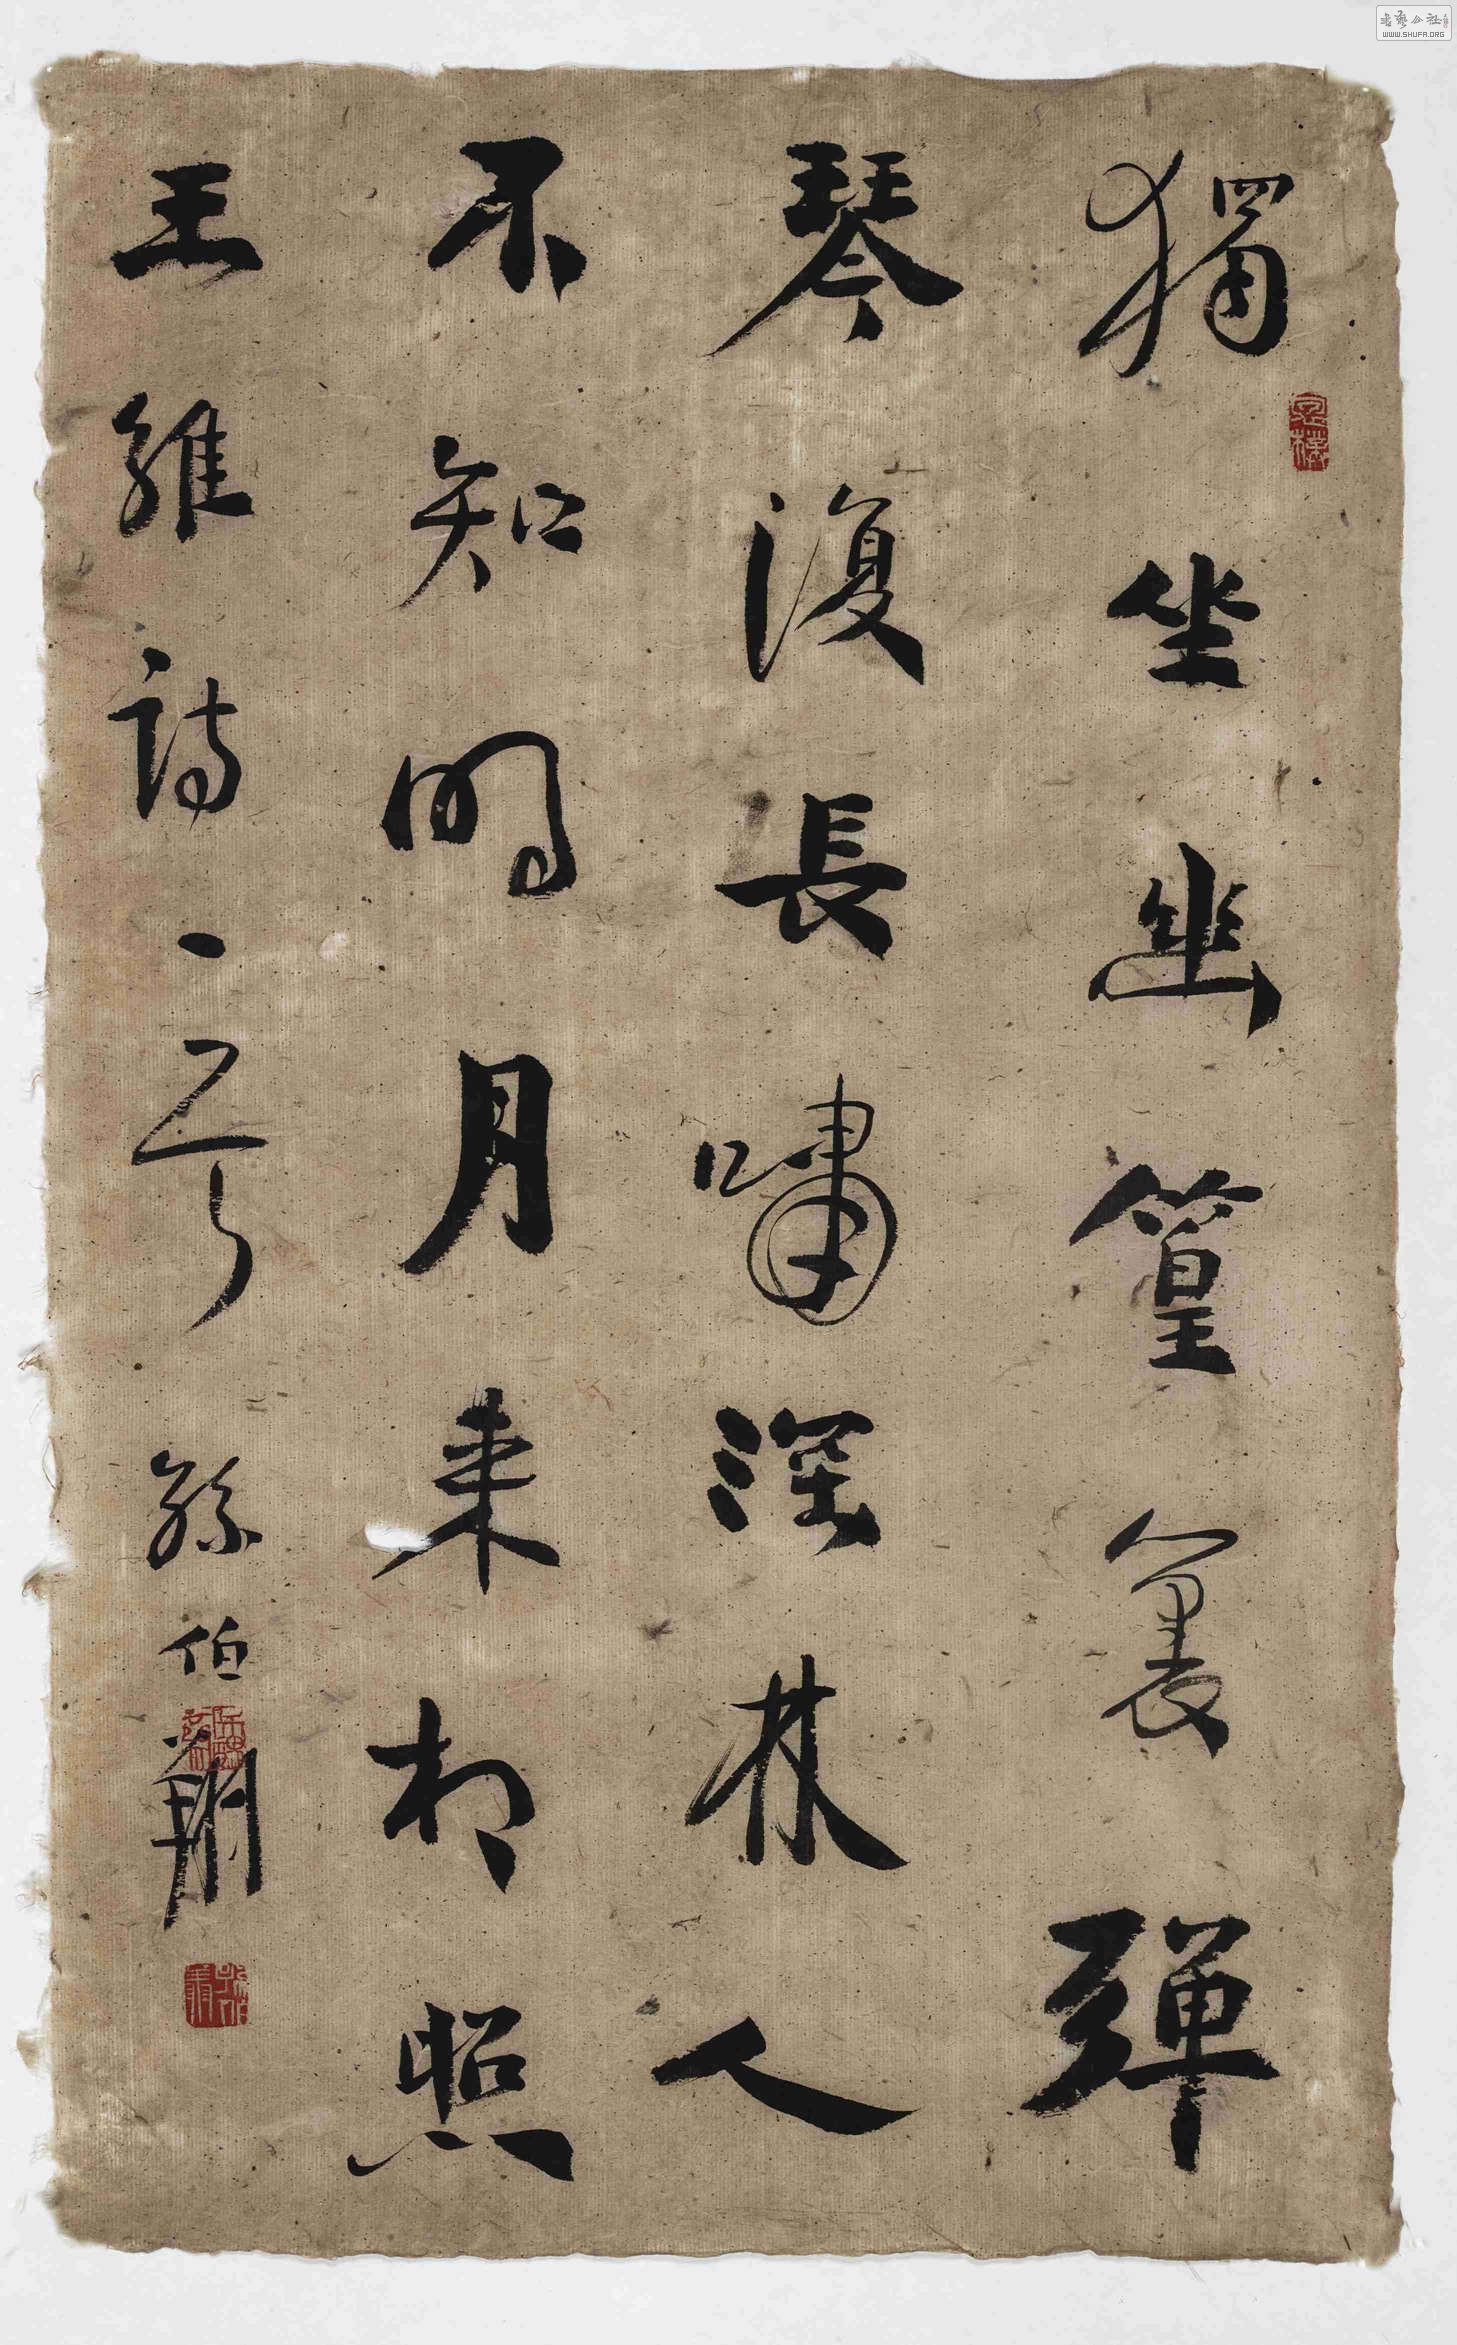 獨坐幽篁裏彈
琴復長嘯深林人
不知明月来相照
王維詩一首孫伯翔
書藝公社
WWW.SHUFA.ORG